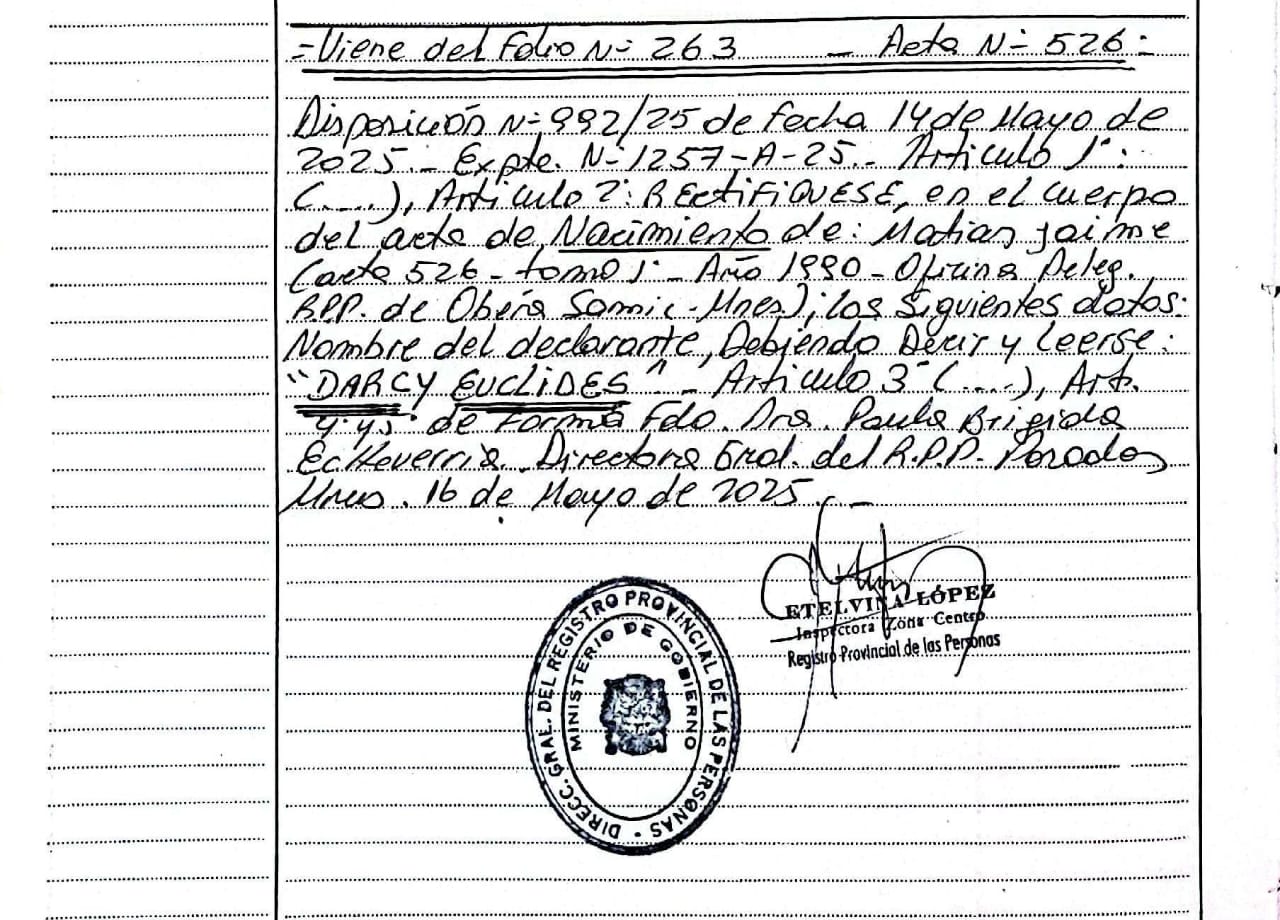 =Viene del Folio Nº 263 - Acta Nº 526=
Disposición Nº 992/25 de fecha 14 de Mayo de
2025.- Expte. Nº 1257-A-25.- Articulo 1º:
(.....), Articulo 2º: RECTIFIQUESE, en el cuerpo
del acta de Nacimiento de: Matias Jaime
(acta 526 - tomo 1º - Año 1990 - Oficina Deleg.
R.P.P. de Oberá Samic - Mnes); los siguientes datos:
Nombre del declarante, Debiendo Decir y Leerse:
"DARCY EUCLIDES" - Articulo 3º (.....), Art.
4º y 5º de Forma Fdo. Dra. Paula Brigida
Echeverria. Directora Gral. del R.P.P. Posadas
Mnes. 16 de Mayo de 2025.-
ETELVINA LÓPEZ
Inspectora Zona Centro
Registro Provincial de las Personas
DIRECC. GRAL. DEL REGISTRO PROVINCIAL DE LAS PERSONAS
MINISTERIO DE GOBIERNO